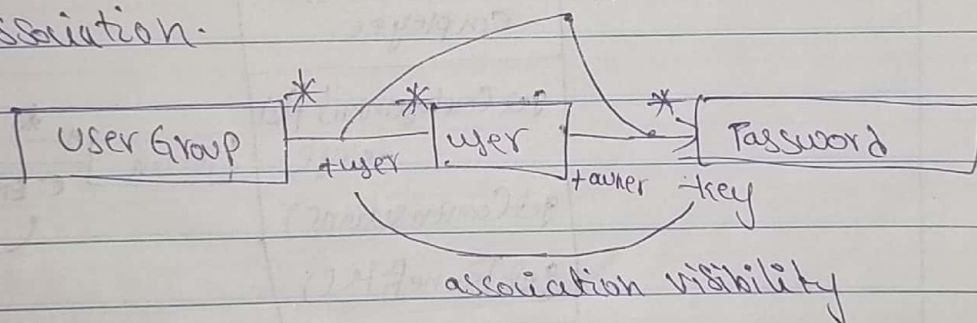 ssociation.
* * *
User Group user Password
+user +owner -key
association visibility